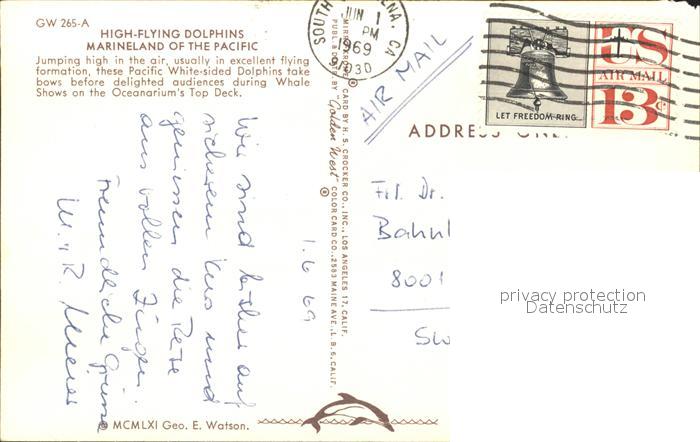 GW 265-A
HIGH-FLYING DOLPHINS
MARINELAND OF THE PACIFIC
Jumping high in the air, usually in excellent flying
formation, these Pacific White-sided Dolphins take
bows before delighted audiences during Whale
Shows on the Oceanarium's Top Deck.
Wir sind bisher auf
sicherem Kurs und
geniessen die Reise
aus vollen Zügen.
Freundliche Grüsse
M. + R.
© MCMLXI Geo. E. Watson.
CARD BY H. S. CROCKER CO., INC., LOS ANGELES 17, CALIF.
"Golden West" ® COLOR CARD CO., 2583 MAINE AVE., L. B. 6, CALIF.
1.6.69
SOUTH
JUN 1
PM
1969
CA
AIR MAIL
LET FREEDOM RING
US
AIR MAIL
13c
ADDRESS
Frl. Dr.
Bahnh
8001
privacy protection
Datenschutz